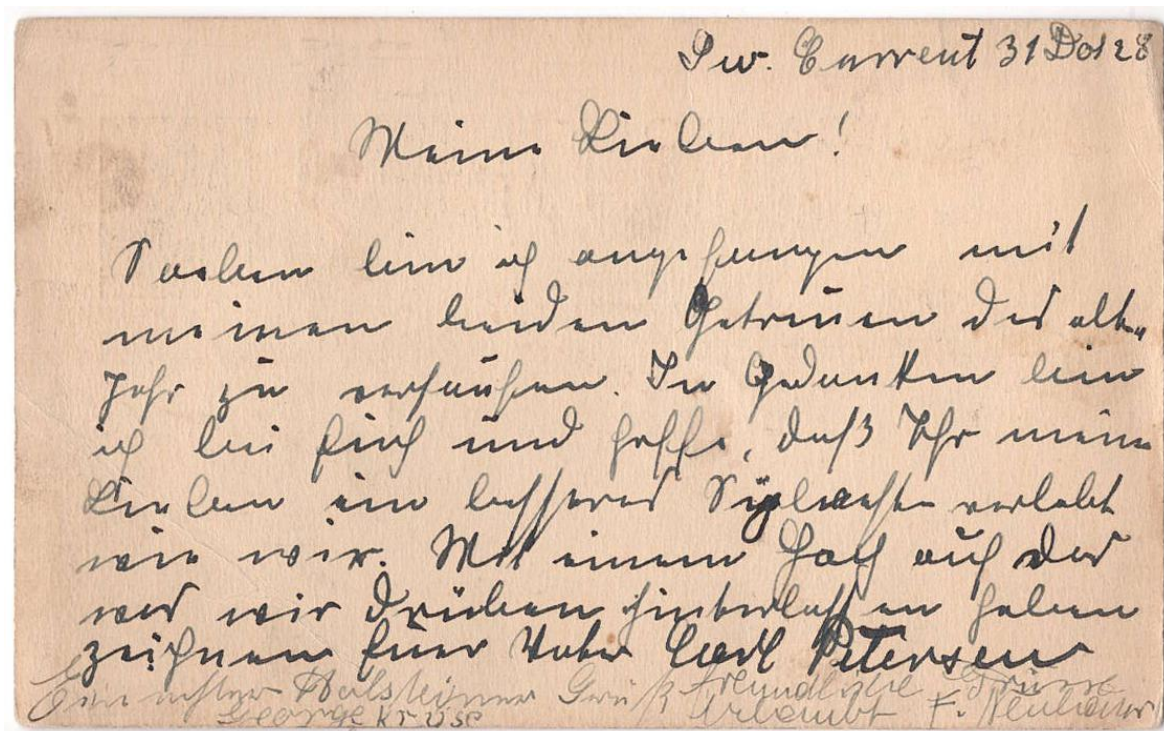 Sw. Current 31 Dez 28
Meine Lieben!
Soeben bin ich angefangen mit
meinen beiden Getreuen das alte
Jahr zu versaufen. In Gedanken bin
ich bei Euch und hoffe, daß Ihr meine
Lieben ein besseres Sylvester verlebt
wie wir. Mit einem Hoch auf das
was wir drüben hinterlassen haben
zeichnen Euer Vater Carl Petersen
Ein echter Holsteiner Gruß freundliche Grüsse
George Kruse erlaubt F.